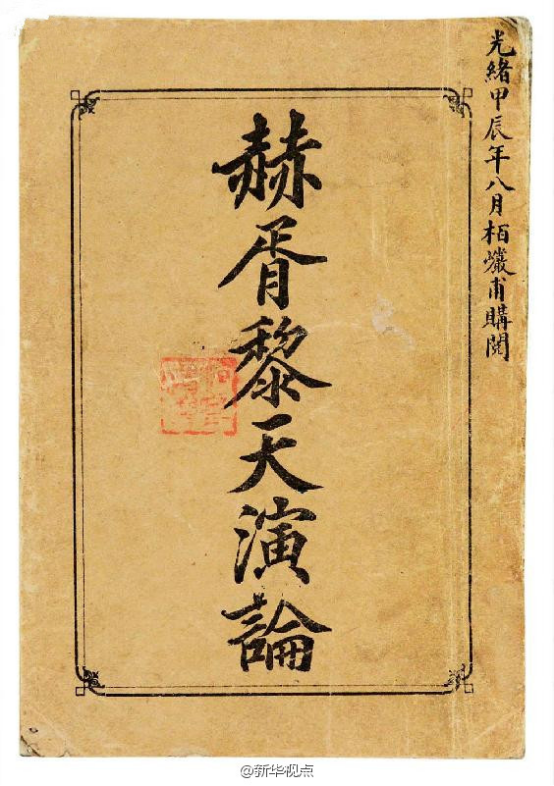 光緒甲辰年八月栢巗甫購閱
赫胥黎天演論
@新华视点